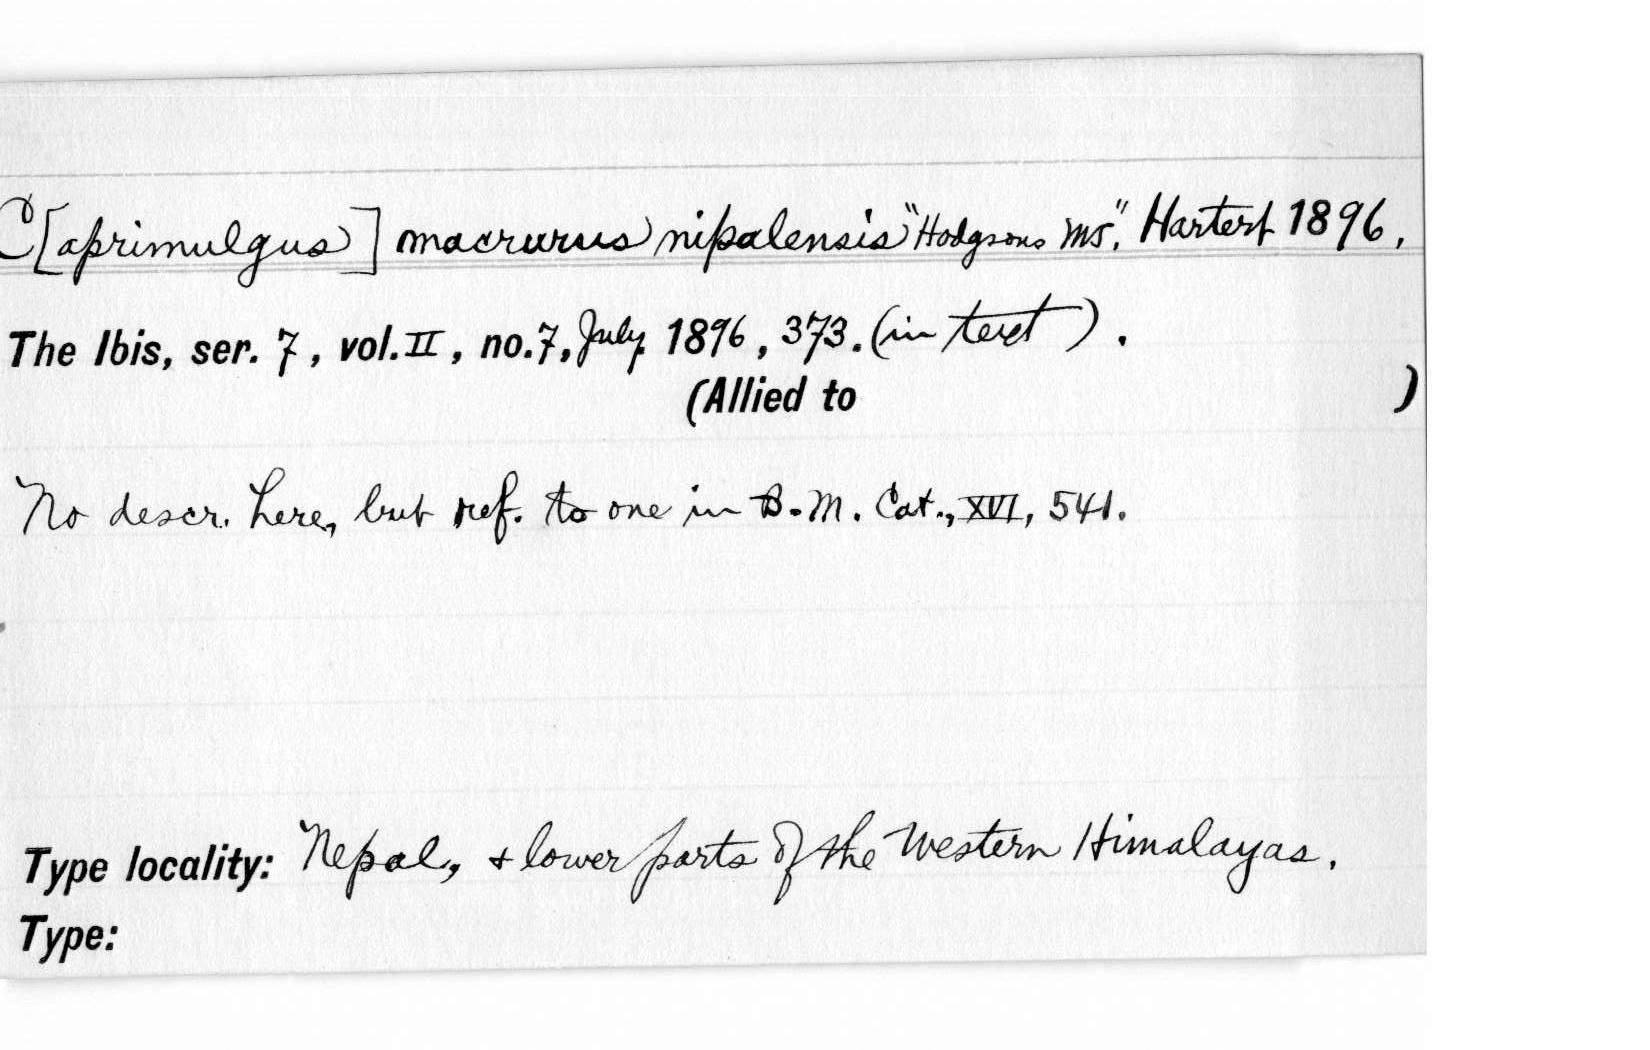 C[aprimulgus] macrurus nipalensis "Hodgsons MS." Hartert 1896.
The Ibis, ser. 7, vol. II, no. 7, July 1896, 373. (in text).
(Allied to )
No descr. here, but ref. to one in B.M. Cat., XVI, 541.
Type locality: Nepal, & lower parts of the Western Himalayas.
Type: